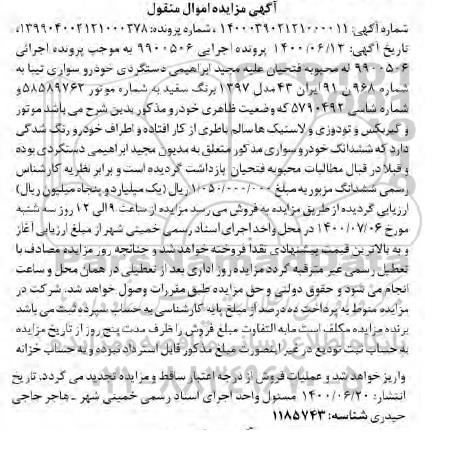 آگهی مزایده اموال منقول
شماره آگهی: ۱۴۰۰۰۳۹۰۲۱۲۱۰۰۰۰۱۱ ، شماره پرونده: ۱۳۹۹۰۴۰۰۲۱۲۱۰۰۰۳۷۸،
تاریخ آگهی: ۱۴۰۰/۰۶/۱۳ پرونده اجرایی ۹۹۰۰۵۰۶ به موجب پرونده اجرائی
۹۹۰۰۵۰۶ له محبوبه فتحیان علیه مجید ابراهیمی دستگردی خودرو سواری تیبا به
شماره ۹۶۸ق۹۱ ایران ۴۳ مدل ۱۳۹۷ برنگ سفید به شماره موتور ۸۵۸۹۷۶۳ و
شماره شاسی ۵۷۹۰۴۹۲ که وضعیت ظاهری خودرو مذکور بدین شرح می باشد موتور
و گیربکس و تودوزی و لاستیک ها سالم باطری از کار افتاده و اطراف خودرو رنگ شدگی
دارد که ششدانگ خودرو سواری مذکور متعلق به مدیون مجید ابراهیمی دستگردی بوده
و قبلا در قبال مطالبات محبوبه فتحیان بازداشت گردیده است و برابر نظریه کارشناس
رسمی ششدانگ مزبور به مبلغ ۱/۰۵۰/۰۰۰/۰۰۰ ریال (یک میلیارد و پنجاه میلیون ریال)
ارزیابی گردیده از طریق مزایده به فروش می رسد مزایده از ساعت ۹ الی ۱۲ روز سه شنبه
مورخ ۱۴۰۰/۰۷/۰۶ در محل واحد اجرای اسناد رسمی خمینی شهر از مبلغ ارزیابی آغاز
و به بالاترین قیمت پیشنهادی نقدا فروخته خواهد شد و چنانچه روز مزایده مصادف با
تعطیل رسمی غیر مترقبه گردد مزایده روز اداری بعد از تعطیلی در همان محل و ساعت
انجام می شود و حقوق دولتی و حق مزایده طبق مقررات وصول خواهد شد. شرکت در
مزایده منوط به پرداخت ده درصد از مبلغ پایه کارشناسی به حساب سپرده ثبت می باشد
برنده مزایده مکلف است مابه التفاوت مبلغ فروش را ظرف مدت پنج روز از تاریخ مزایده
به حساب ثبت تودیع در غیر اینصورت مبلغ مذکور قابل استرداد نبوده و به حساب خزانه
واریز خواهد شد و عملیات فروش از درجه اعتبار ساقط و مزایده تجدید می گردد. تاریخ
انتشار: ۱۴۰۰/۰۶/۲۰ مسئول واحد اجرای اسناد رسمی خمینی شهر ـ هاجر حاجی
حیدری شناسه: ۱۱۸۵۷۴۳